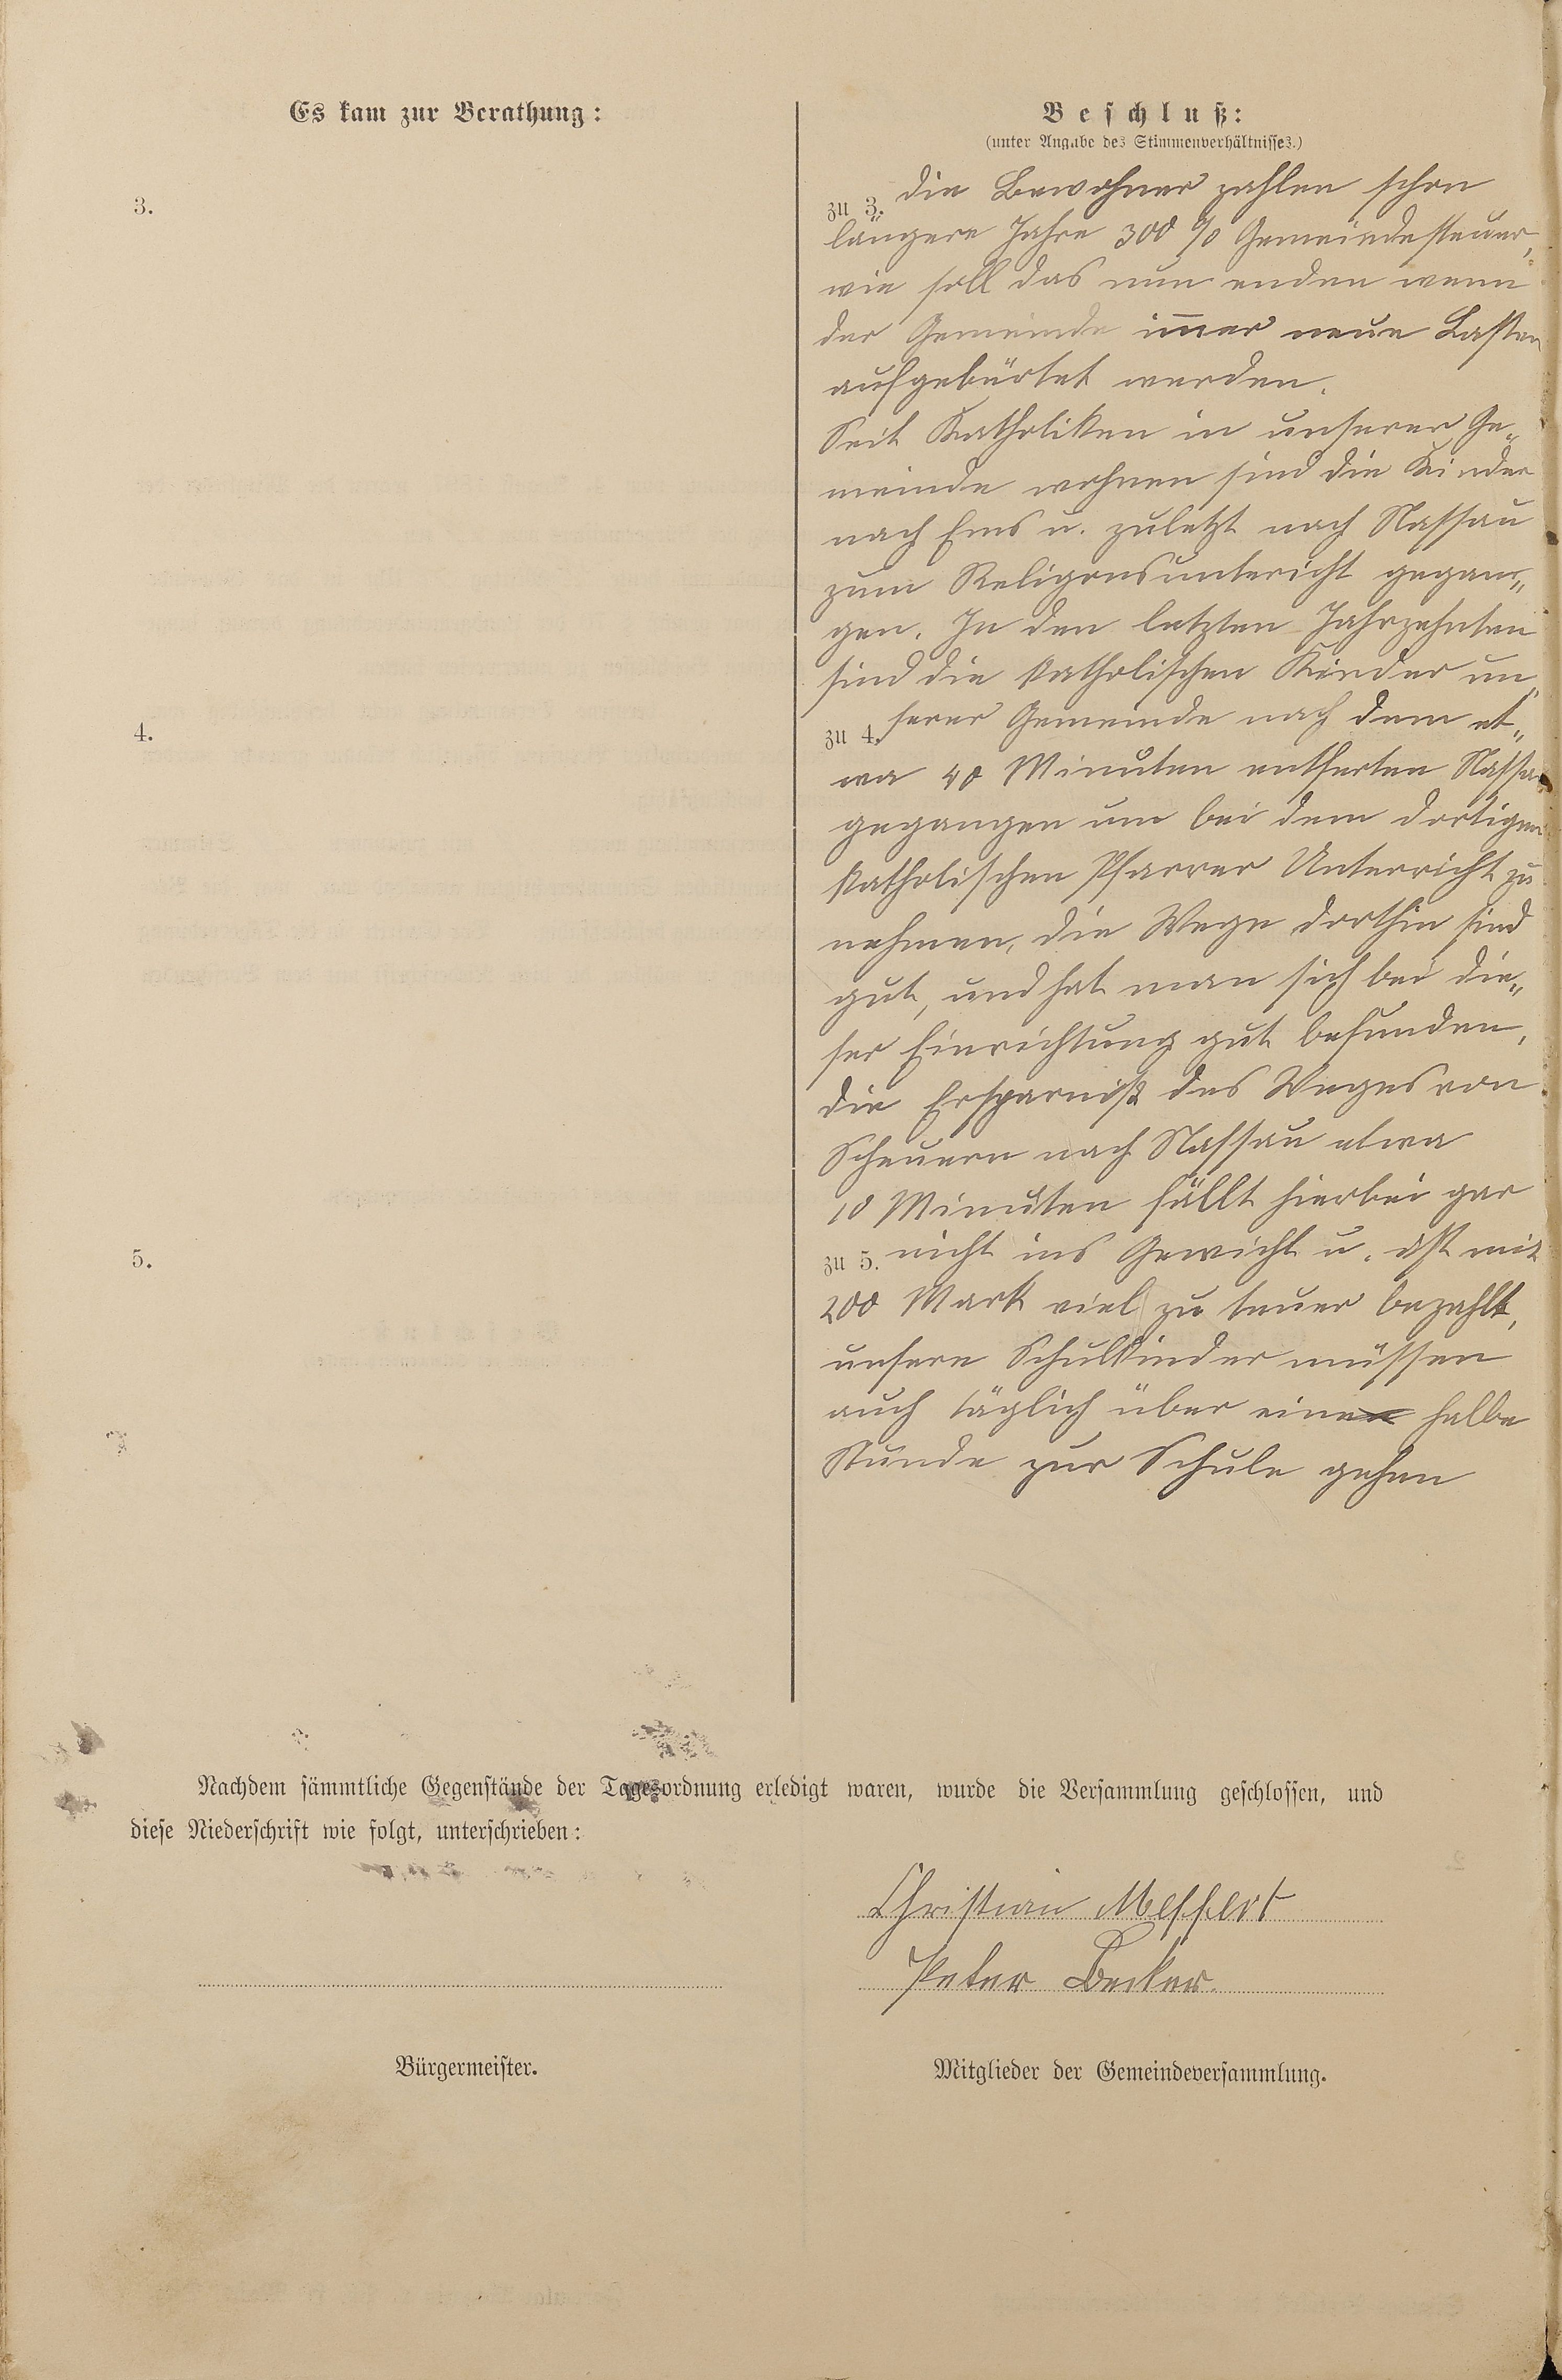 Es kam zur Berathung:
3.
4.
5.
Beschluß:
(unter Angabe des Stimmenverhältnisses.)
zu 3. die Bewohner zahlen schon
längere Jahre 300 % Gemeindesteuer,
wie soll das nun enden wenn
der Gemeinde im̅er neue Lasten
aufgebürtet werden.
Seit Katholiken in unserer Ge„
meinde wohnen sind die Kinder
nach Ems u. zuletzt nach Nassau
zum Religonsuntericht gegan„
gen. In den letzten Jahrzehnten
sind die katholischen Kinder un„
zu 4. serer Gemeinde nach dem et„
wa 40 Minuten entferten Nassau
gegangen um bei dem dortigen
katholischen Pfarrer Unterricht zu
nehmen, die Wege dorthin sind
gut, und hat man sich bei die„
ser Einrichtung gut befunden,
die Ersparniß des Weges von
Scheuern nach Nassau etwa
10 Minuten fällt hierbei gar
zu 5. nicht ins Gewicht u. ist mit
200 Mark viel zu teuer bezahlt,
unsere Schulkinder müssen
auch täglich über eine halbe
Stunde zur Schule gehen
Nachdem sämmtliche Gegenstände der Tagesordnung erledigt waren, wurde die Versammlung geschlossen, und
diese Niederschrift wie folgt, unterschrieben:
Christian Meffert
Peter Becker.
Bürgermeister.
Mitglieder der Gemeindeversammlung.